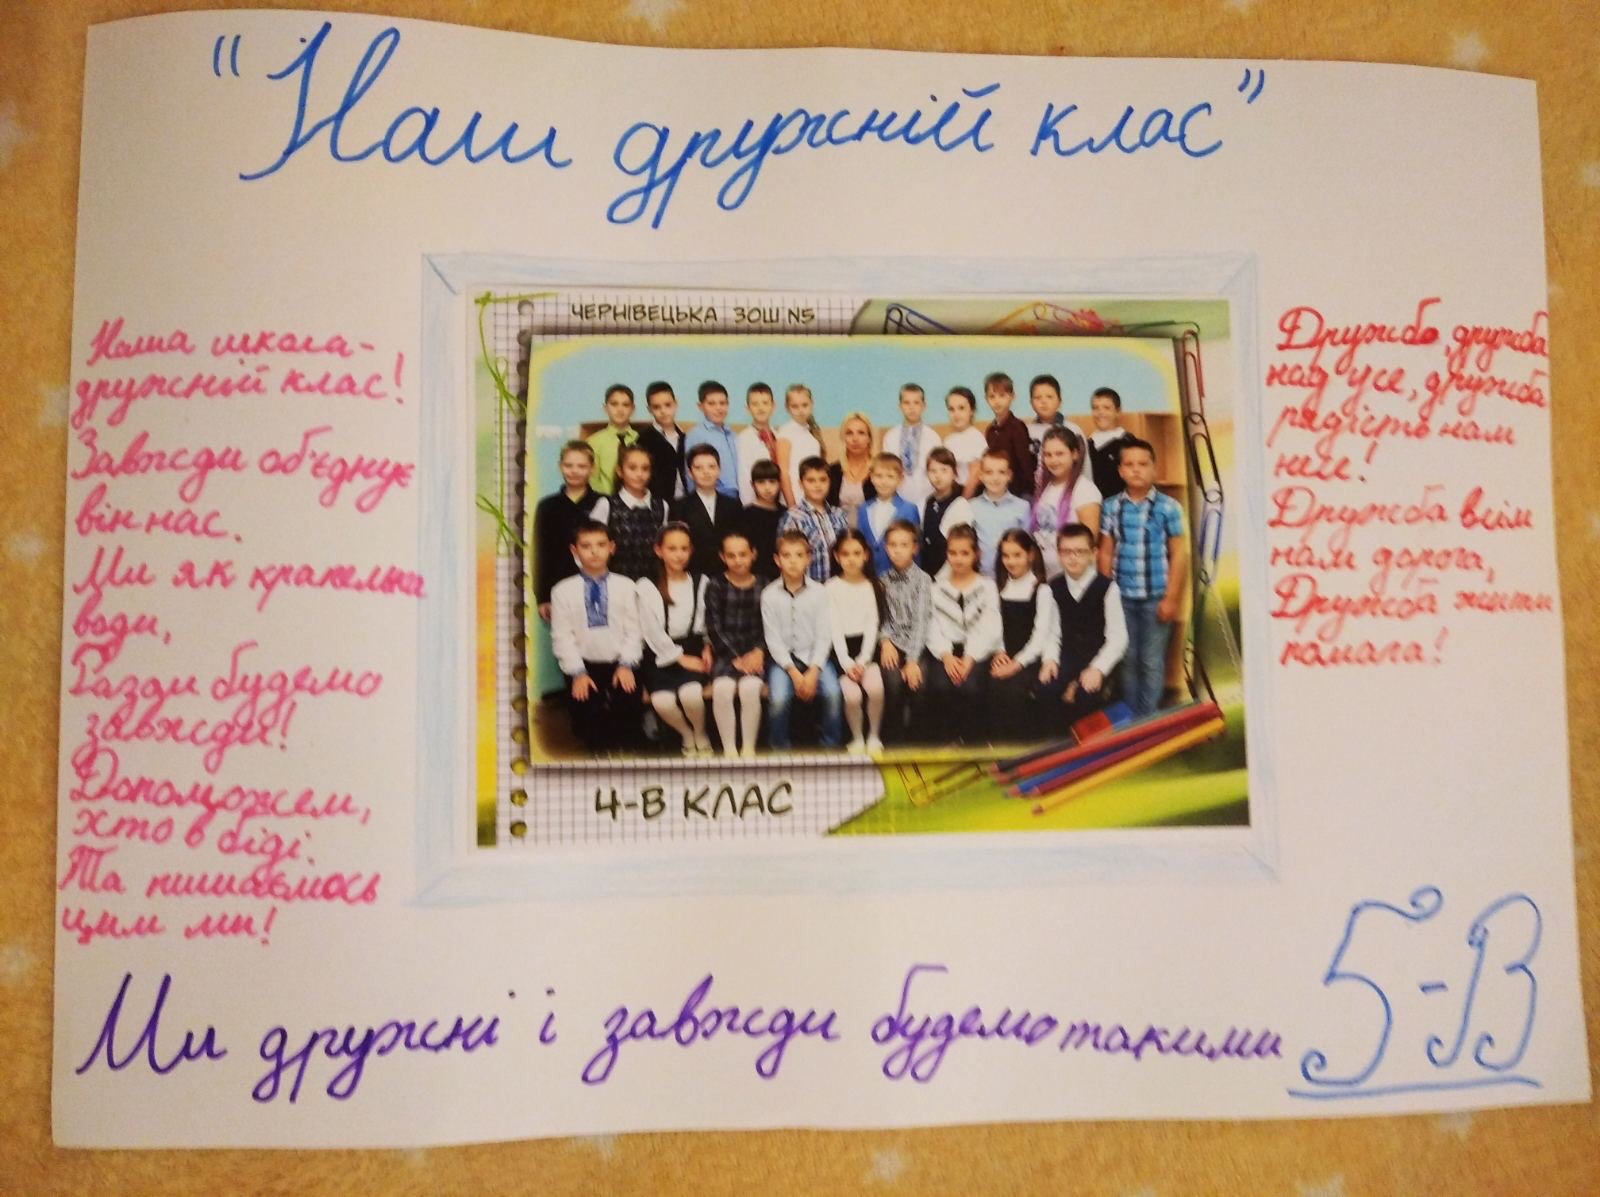 "Наш дружній клас"
Наша школа-
дружній клас!
Завжди об'єднує
він нас.
Ми як крапелька
води,
Разди будемо
завжди!
Допоможем,
хто в біді.
Та пишаємось
цим ми!
ЧЕРНІВЕЦЬКА ЗОШ N5
4-В КЛАС
Дружба, дружба
над усе, дружба
радість нам
несе!
Дружба всім
нам дорога,
Дружба жити
помага!
Ми дружні і завжди будемо такими
5-В